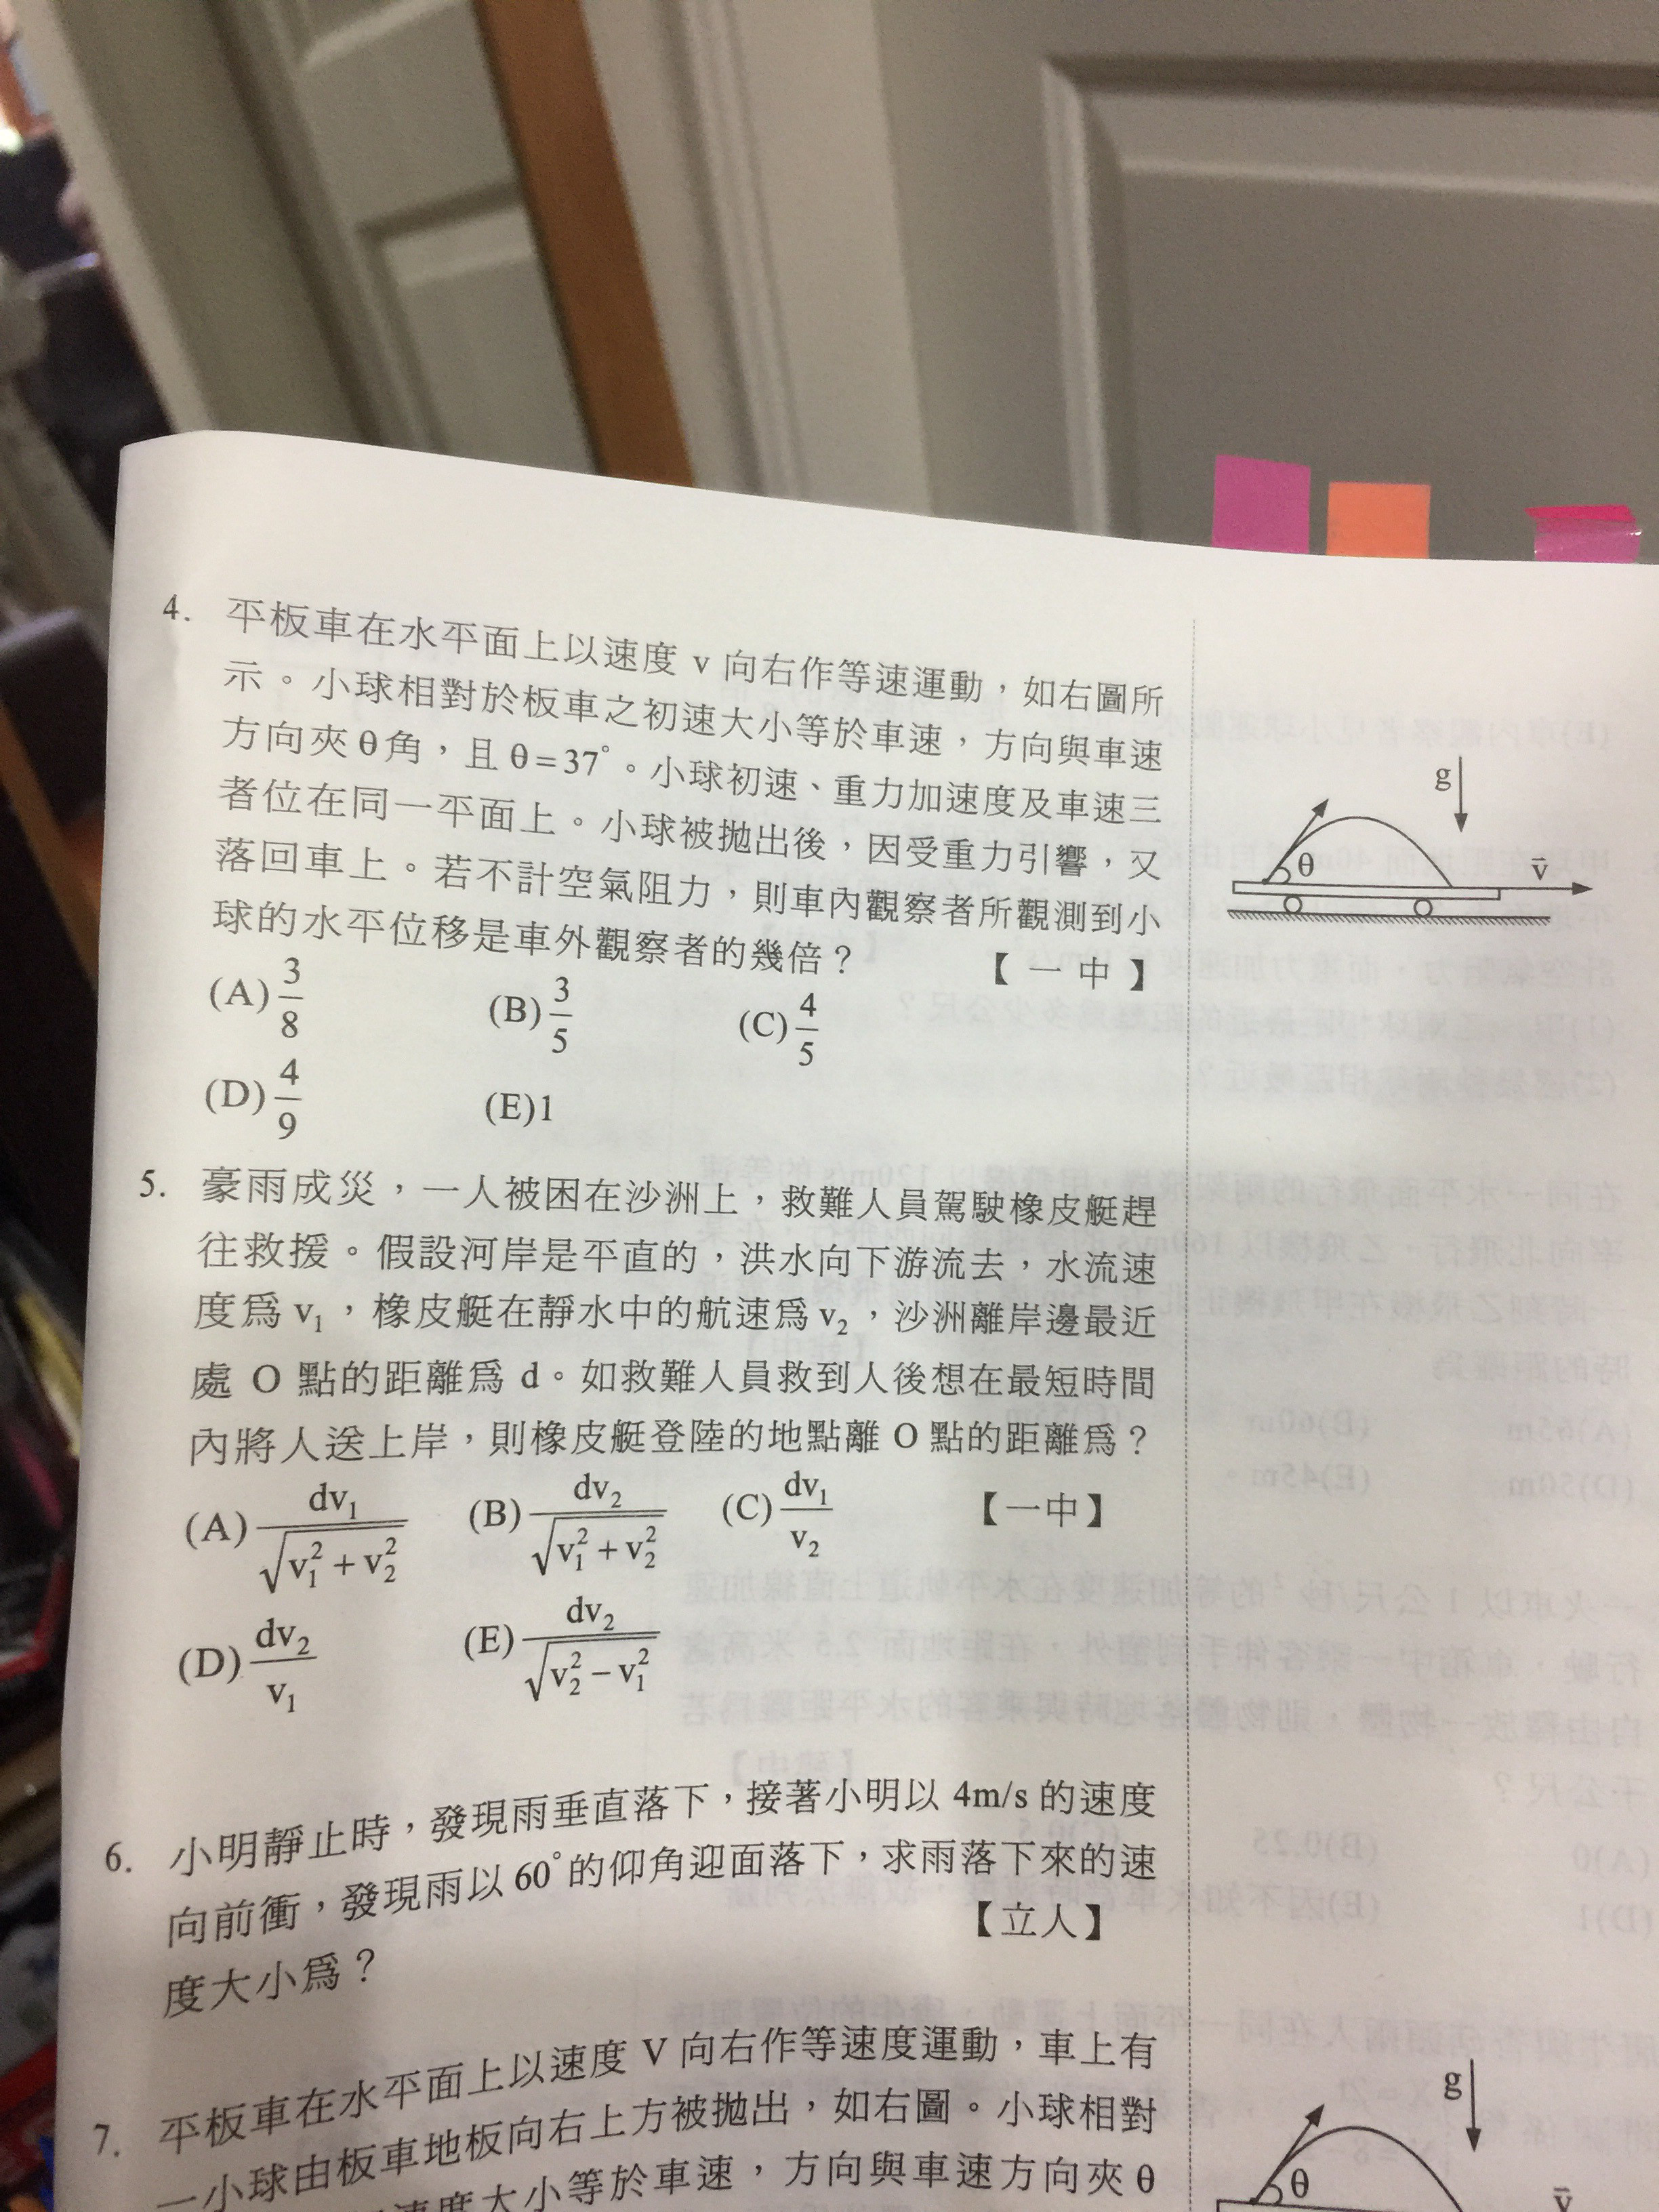 4. 平板車在水平面上以速度 v 向右作等速運動，如右圖所
示。小球相對於板車之初速大小等於車速，方向與車速
方向夾θ角，且θ=37°。小球初速、重力加速度及車速三
者位在同一平面上。小球被拋出後，因受重力引響，又
落回車上。若不計空氣阻力，則車內觀察者所觀測到小
球的水平位移是車外觀察者的幾倍？ 【一中】
(A) 3/8 (B) 3/5 (C) 4/5
(D) 4/9 (E) 1
g
θ
v⃗
5. 豪雨成災，一人被困在沙洲上，救難人員駕駛橡皮艇趕
往救援。假設河岸是平直的，洪水向下游流去，水流速
度爲 v₁，橡皮艇在靜水中的航速爲 v₂，沙洲離岸邊最近
處 O 點的距離爲 d。如救難人員救到人後想在最短時間
內將人送上岸，則橡皮艇登陸的地點離 O 點的距離爲？
(A) dv₁/√(v₁²+v₂²) (B) dv₂/√(v₁²+v₂²) (C) dv₁/v₂ 【一中】
(D) dv₂/v₁ (E) dv₂/√(v₂²−v₁²)
6. 小明靜止時，發現雨垂直落下，接著小明以 4m/s 的速度
向前衝，發現雨以 60°的仰角迎面落下，求雨落下來的速
度大小爲？ 【立人】
7. 平板車在水平面上以速度 V 向右作等速度運動，車上有
一小球由板車地板向右上方被拋出，如右圖。小球相對
速度大小等於車速，方向與車速方向夾 θ
g
θ
v⃗